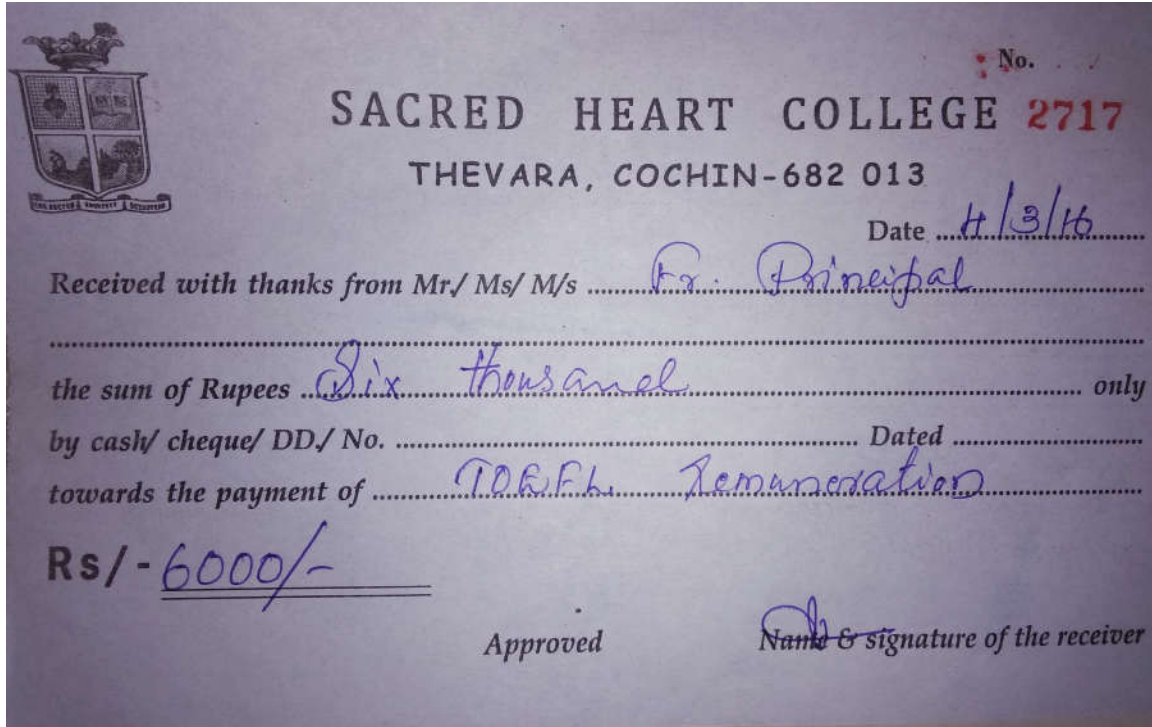 No.
SACRED HEART COLLEGE 2717
THEVARA, COCHIN-682 013
Date 4/3/16
Received with thanks from Mr./ Ms/ M/s Fr. Principal
the sum of Rupees Six thousand only
by cash/ cheque/ DD./ No. Dated
towards the payment of TOEFL Remuneration
Rs/- 6000/-
Approved Name & signature of the receiver